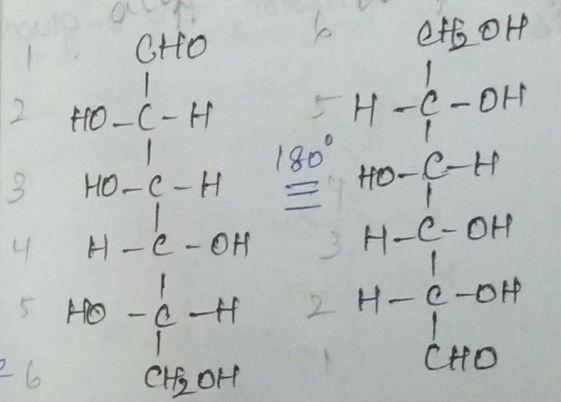 1 CHO
2 HO-C-H
3 HO-C-H
4 H-C-OH
5 HO-C-H
6 CH₂OH
180°
≡
6 CH₂OH
5 H-C-OH
4 HO-C-H
3 H-C-OH
2 H-C-OH
1 CHO